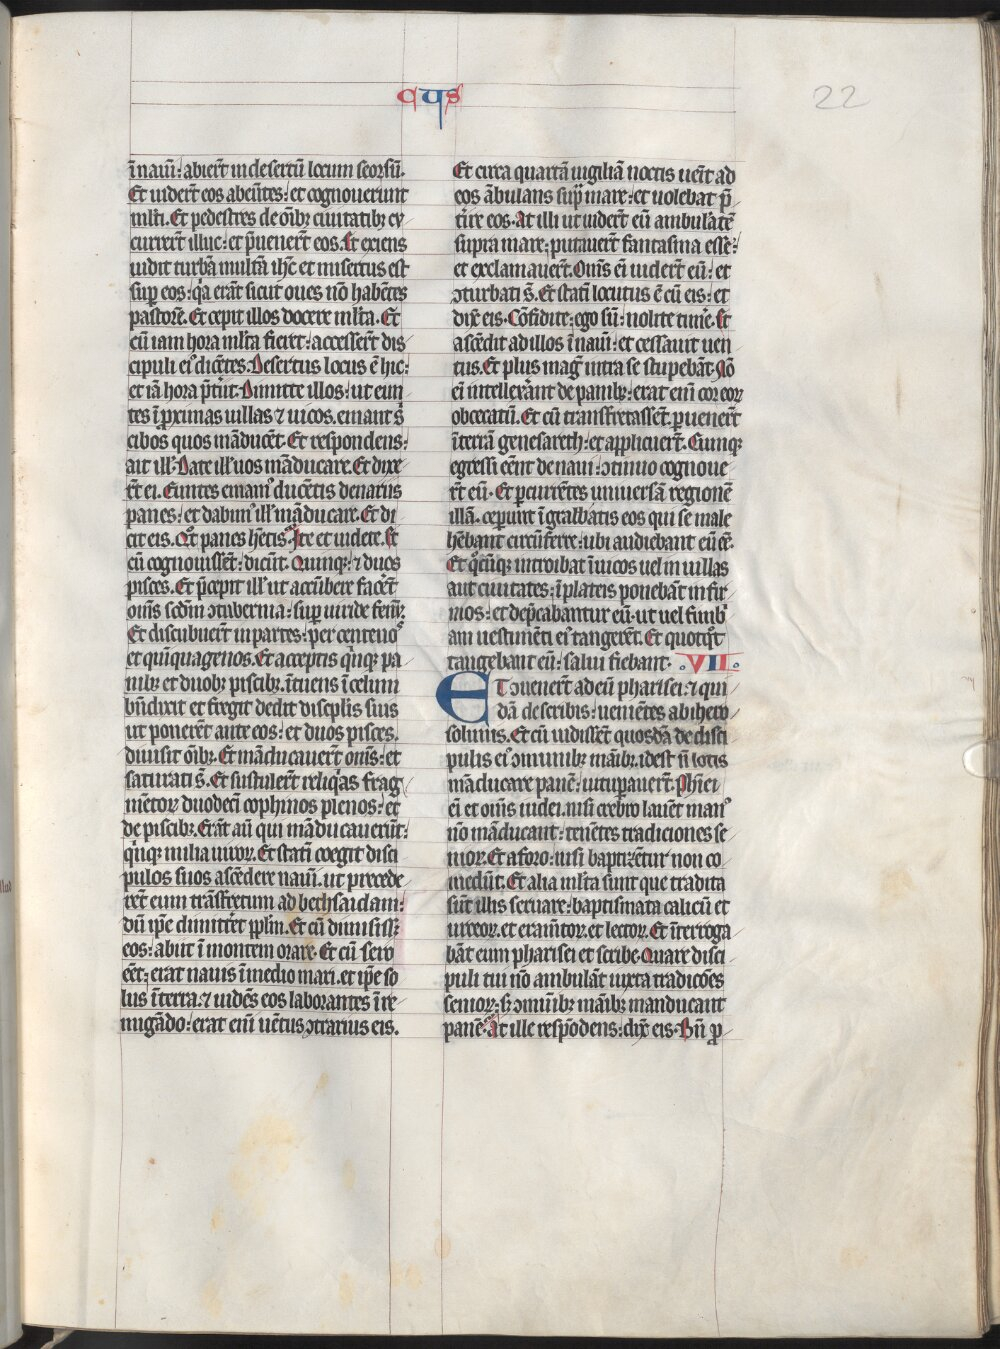 cus
22
ī naui: abierūt in desertū locum seorsū.
Et viderūt eos abeūtes: et cognouerunt
mlti. Et pedestres de oīb ciuitatibꝫ cō
currerūt illuc: et p̄uenerūt eos. Et exiens
uidit turbā multā ihc̄ et misertus est
suꝑ eos: qͥa erāt sicut oues nō habētes
pastorē. Et cepit illos docere mlta. Et
cū iam hora mlta fieret: accesserūt dis
cipuli eiꝰ dicētes. Desertus locus ē hic:
et iā hora p̄t̄iit. Dimitte illos: ut eun
tes ī ꝓximas uillas ⁊ uicos. emant s̄
cibos quos māducēt. Et respondens:
ait ill̄. Date ill̄ uos māducare. Et dixe
rūt ei. Euntes emamꝰ ducētis denariis
panes: et dabimꝰ ill̄ māducare. Et di
cit eis. Qͦt panes hētis. Ite et uidete. Et
cū cognouissēt: dicūt. Quinqꝫ: ⁊ duos
pisces. Et p̄cepit ill̄ ut accūbere facēt
oīns scd̄m ↄtubernia: suꝑ uiride fenū.
Et discubuerūt in partes: per centenoˢ
et quīquagenos. Et acceptis qͥnqꝫ pa
nibꝫ et duobꝫ piscibꝫ. ītuens ī celum
bn̄dixit et fregit dedit discipl̄is suis
ut ponerēt ante eos: et duos pisces.
diuisit oīb. Et māducauerūt oīns: et
saturati s̄. Et sustulerūt reliqͥas frag
mētoꝝ duodecī cophinos plenos: et
de piscibꝫ. Erāt aū qui māducauerūt:
qͥnqꝫ milia uiroꝝ. Et statī coegit disci
pulos suos ascēdere nauī. ut precede
rēt eum trāsfretum ad bethsaidam:
dū ip̄e dimitt̄et ppl̄m. Et cū dimisissꝫ
eos: abiit ī montem orare. Et cū sero
eēt: erat nauis ī medio mari. et ip̄e so
lus ī terra: ⁊ uidēs eos laborantes ī re
migādo: erat enī uētus ↄtrarius eis.
Et circa quartā uigiliā noctis uēit ad
eos ābulans supͣ mare: et uolebat p̄
t̄ire eos. At illi ut uiderūt eū ambulātē
supra mare: putauerūt fantasma esse:
et exclamauerūt. Om̄s eī uiderūt eū: et
ↄturbati s̄. Et statī locutus ē cū eis: et
dix̄ eis. Cōfidite: ego sū: nolite tim̄e. Et
ascēdit ad illos ī nauī: et cessauit uen
tus. Et plus magͥ intra se stupebāt. Nō
eī intellex̄ant de panibꝫ: erat enī cor eoꝝ
obcecatū. Et cū transfretassēt. ꝑuenerūt
ī terrā genesareth: et applicuerūt. Cumqꝫ
egressi eēnt de naui: ↄtinuo cognoue
rūt eū. Et ꝑcurrētes uniuersā regionē
illā. ceperunt ī grabatis eos qui se male
hēbant circūferre: ubi audiebant eū eē.
Et qͦcūqꝫ introibat ī uicos uel in uillas
aut ciuitates: ī plateis ponebāt infir
mos: et dep̄cabantur eū. ut uel fimbͥ
am uestimēti eiꝰ tangerēt. Et quotqͦt
tangebant eū: salui fiebant. VII.
ET ↄuenerūt ad eū pharisei: ⁊ qui
dā de scribis: ueniētes ab ihero
solimis. Et cū uidissēt quosdā de disci
pulis eiꝰ ↄmunibꝫ māibꝫ. id est n̄ lotis
māducare panē: uituꝑauerūt. Ph̄iei
eī et om̄s iudei. nisi crebro lauēt manꝰ
nō māducant: tenētes tradiciones se
nioꝝ. Et a foro: nisi baptizētur non co
medūt. Et alia mlta sunt que tradita
sūt illis seruare: baptismata calicū et
urceoꝝ. et eram̄toꝝ et lectoꝝ. Et īterroga
bāt eum pharisei et scribe. Quare disci
puli tui nō ambulāt iuxta tradicōes
senioꝝ: sꝫ ↄmunībꝫ māibꝫ manducant
panē. At ille respōdens: dix̄ eis. Bn̄ ꝓ